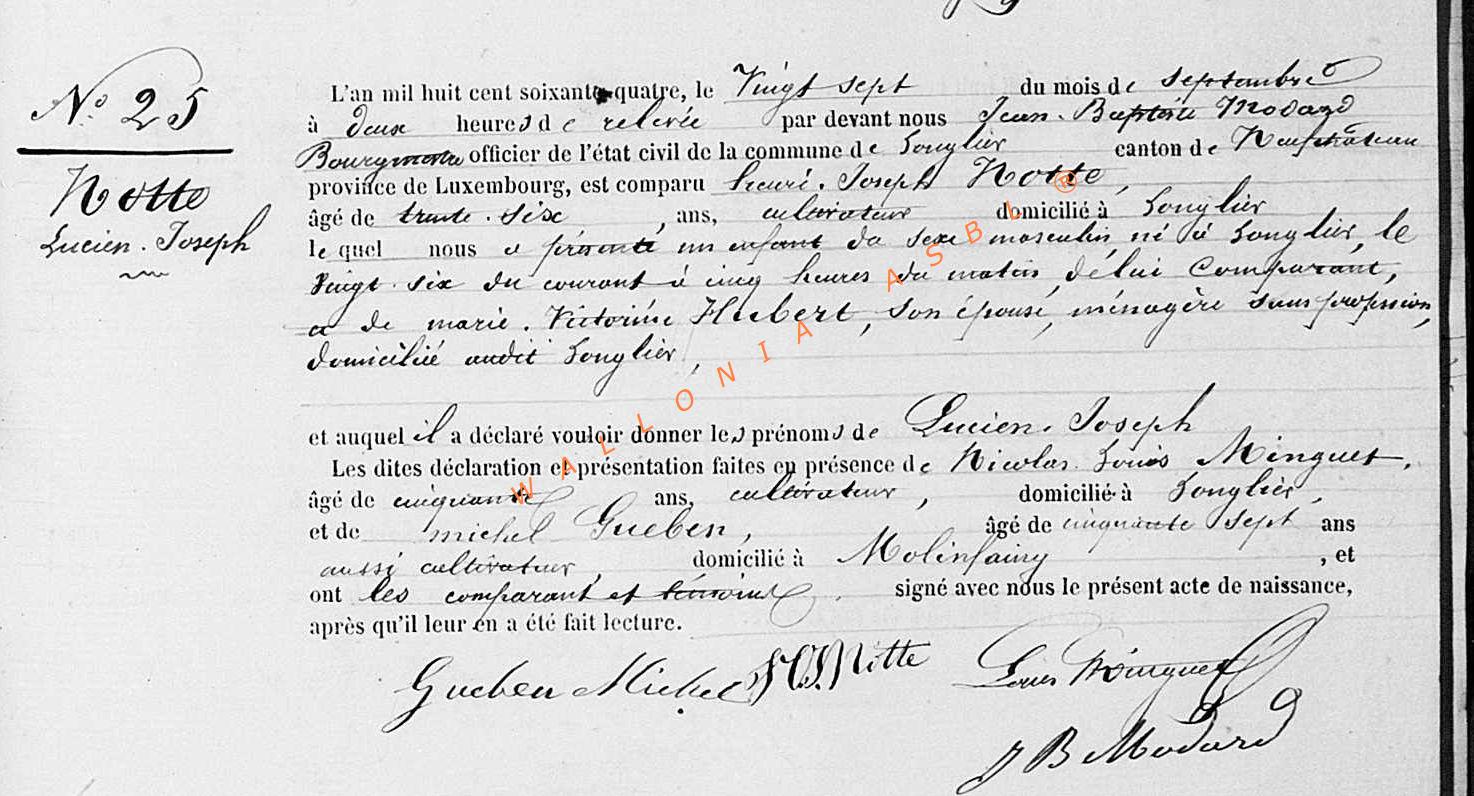 N° 25
Notte
Lucien. Joseph
L'an mil huit cent soixante-quatre, le Vingt sept du mois de septembre
à deux heures de relevée par devant nous Jean-Baptiste Modard
Bourgmestre officier de l'état civil de la commune de Longlier canton de Neufchâteau
province de Luxembourg, est comparu henri. Joseph Notte,
âgé de trente-six, ans, cultivateur domicilié à Longlier
le quel nous a présenté un enfant du sexe masculin, né à Longlier, le
vingt-six du courant à cinq heures du matin, de lui Comparant,
et de marie. Victorine Hubert, son épouse, ménagère sans profession,
domicilié audit Longlier,
et auquel il a déclaré vouloir donner les prénoms de Lucien. Joseph
Les dites déclaration et présentation faites en présence de Nicolas Louis Minguet,
âgé de cinquante ans, cultivateur, domicilié à Longlier,
et de michel Gueben, âgé de cinquante sept ans
aussi cultivateur, domicilié à Molinfaing, et
ont les comparant et témoins signé avec nous le présent acte de naissance,
après qu'il leur en a été fait lecture.
Gueben Michel H. J. Notte Louis Minguet
J B Modard
WALLONIA ASBL ®